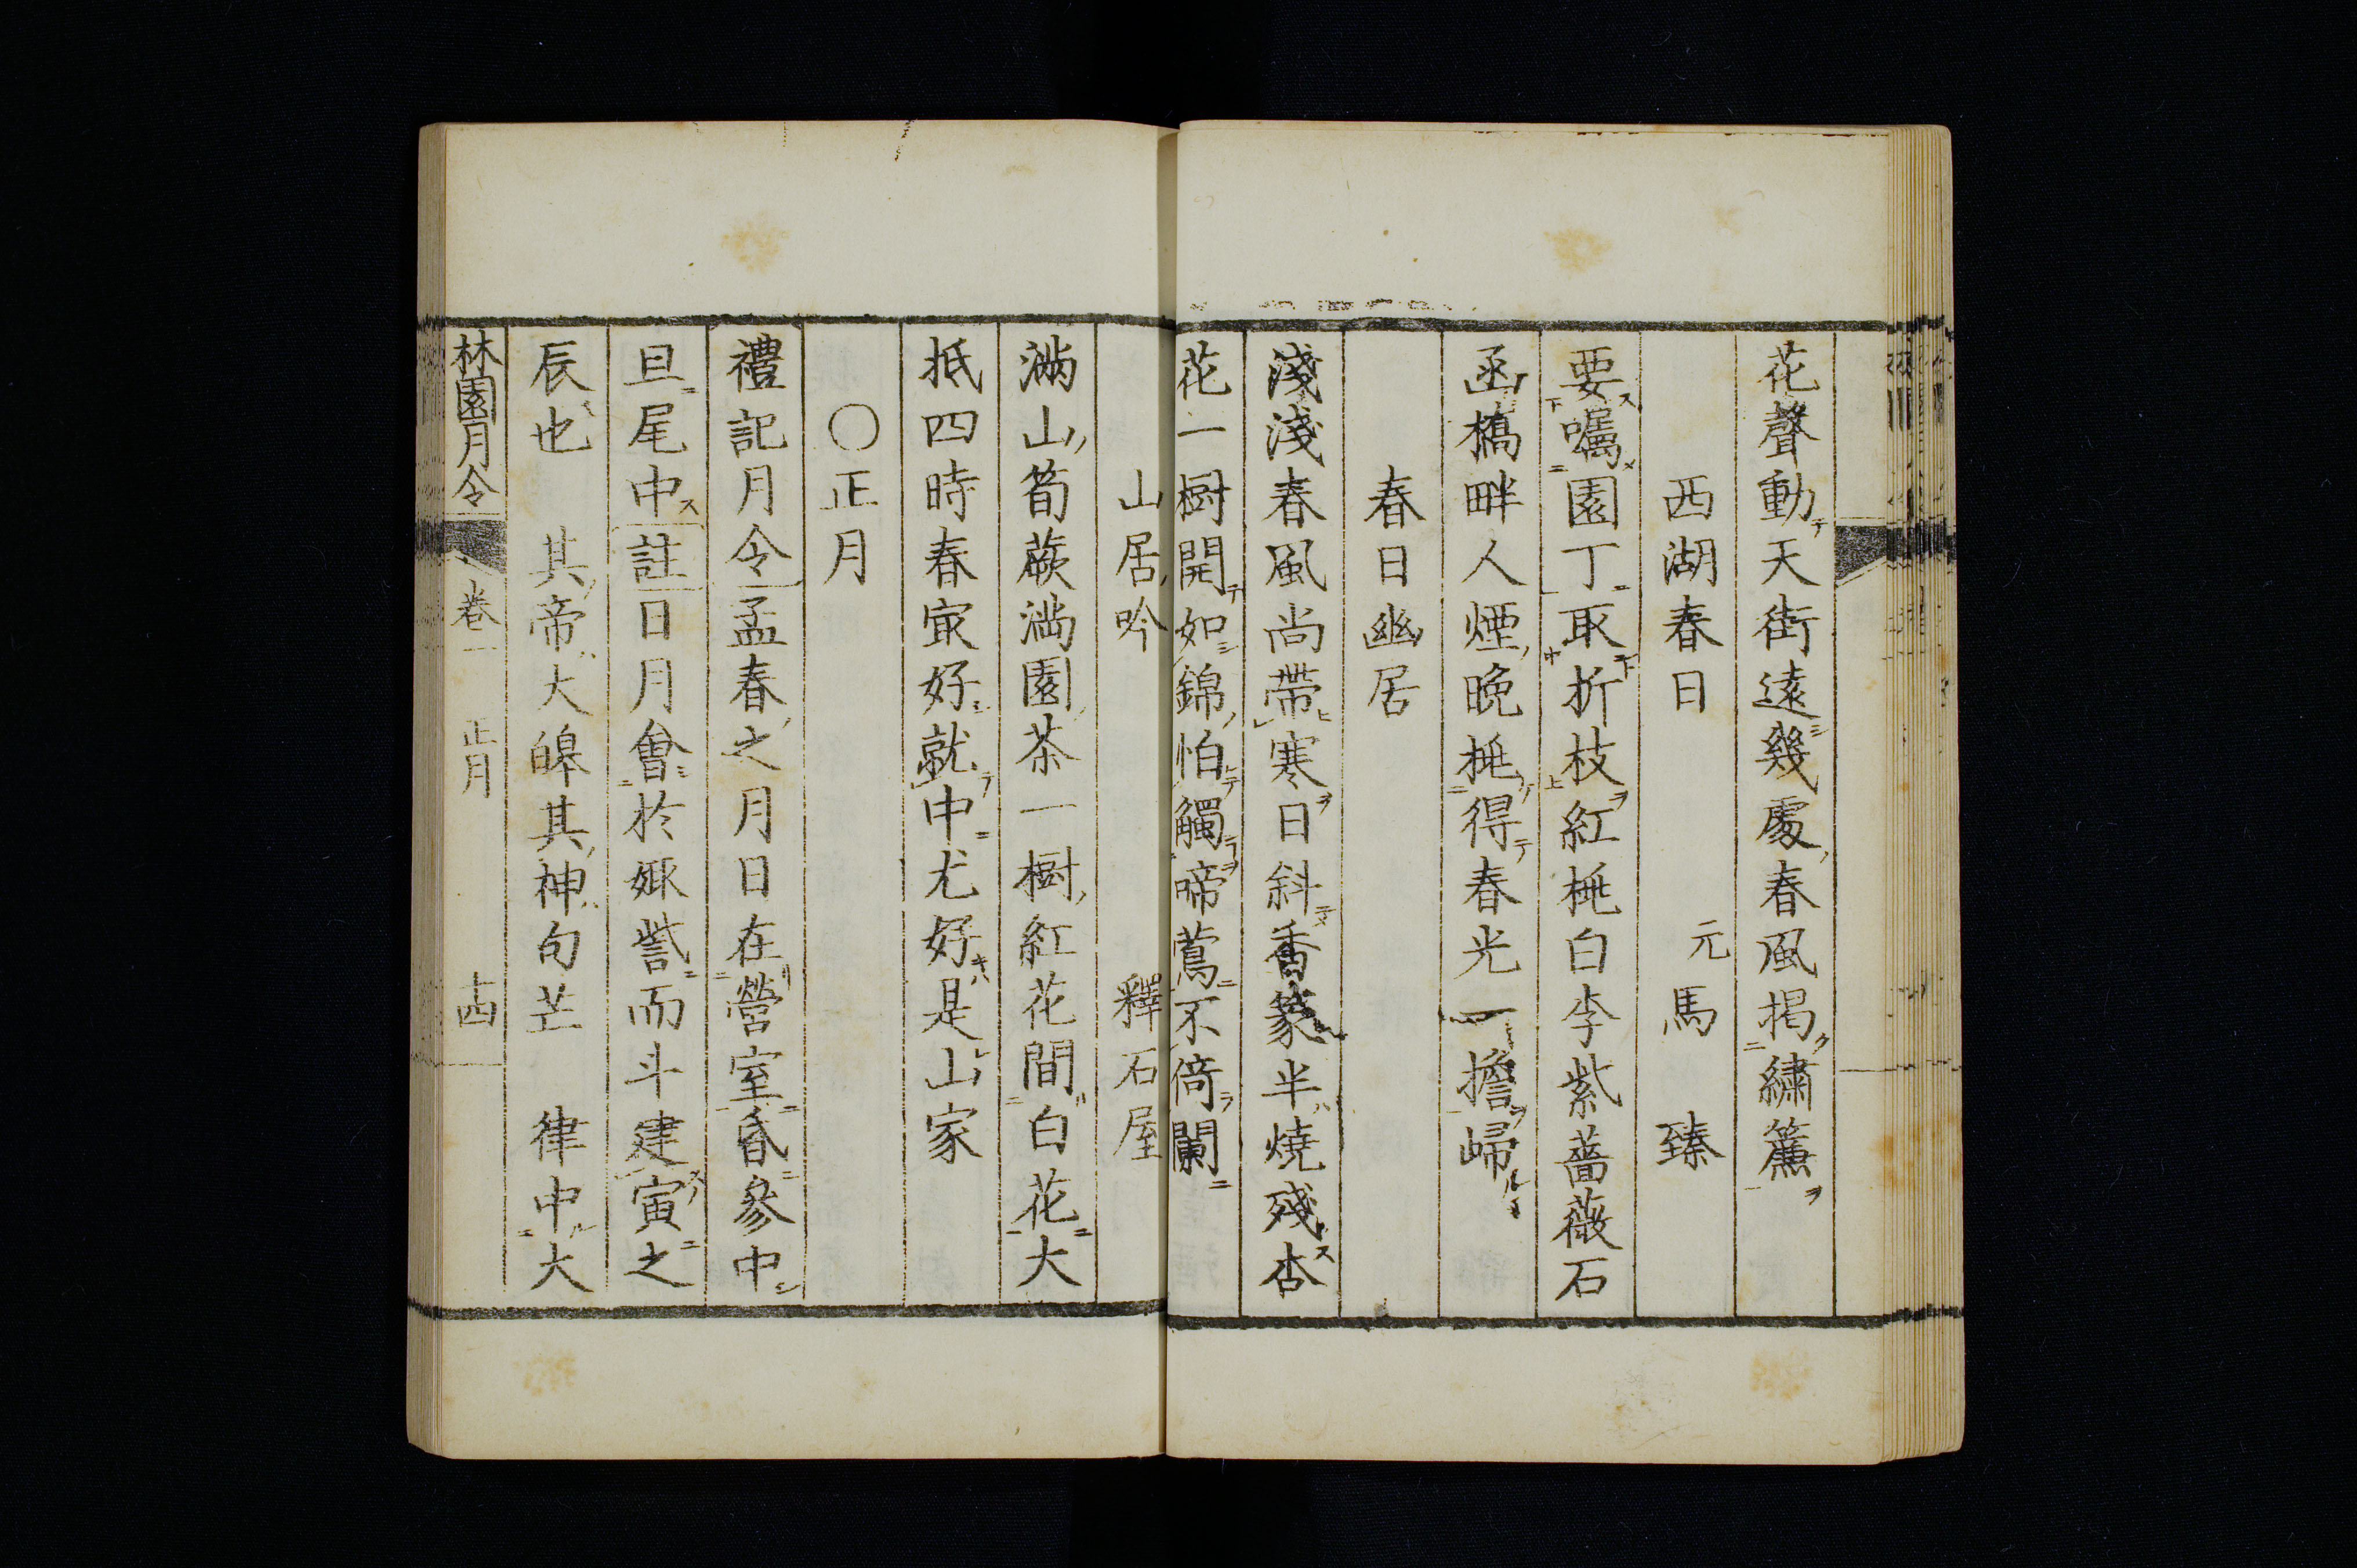 花聲動天街遠幾處春風揭繡簾
西湖春日　元馬臻
要囑園丁取折枝紅桃白李紫薔薇石
函橋畔人煙晚桃得春光一擔歸
春日幽居
淺淺春風尚帶寒日斜香篆半燒殘杏
花一樹開如錦怕觸啼鶯不倚闌
山居吟　釋石屋
滿山筍蕨滿園茶一樹紅花間白花大
抵四時春冣好就中尤好是山家
〇正月
禮記月令孟春之月日在營室昏參中
旦尾中註日月會於娵訾而斗建寅之
辰也　其帝大皞其神句芒　律中大
林園月令　卷一　正月　十四